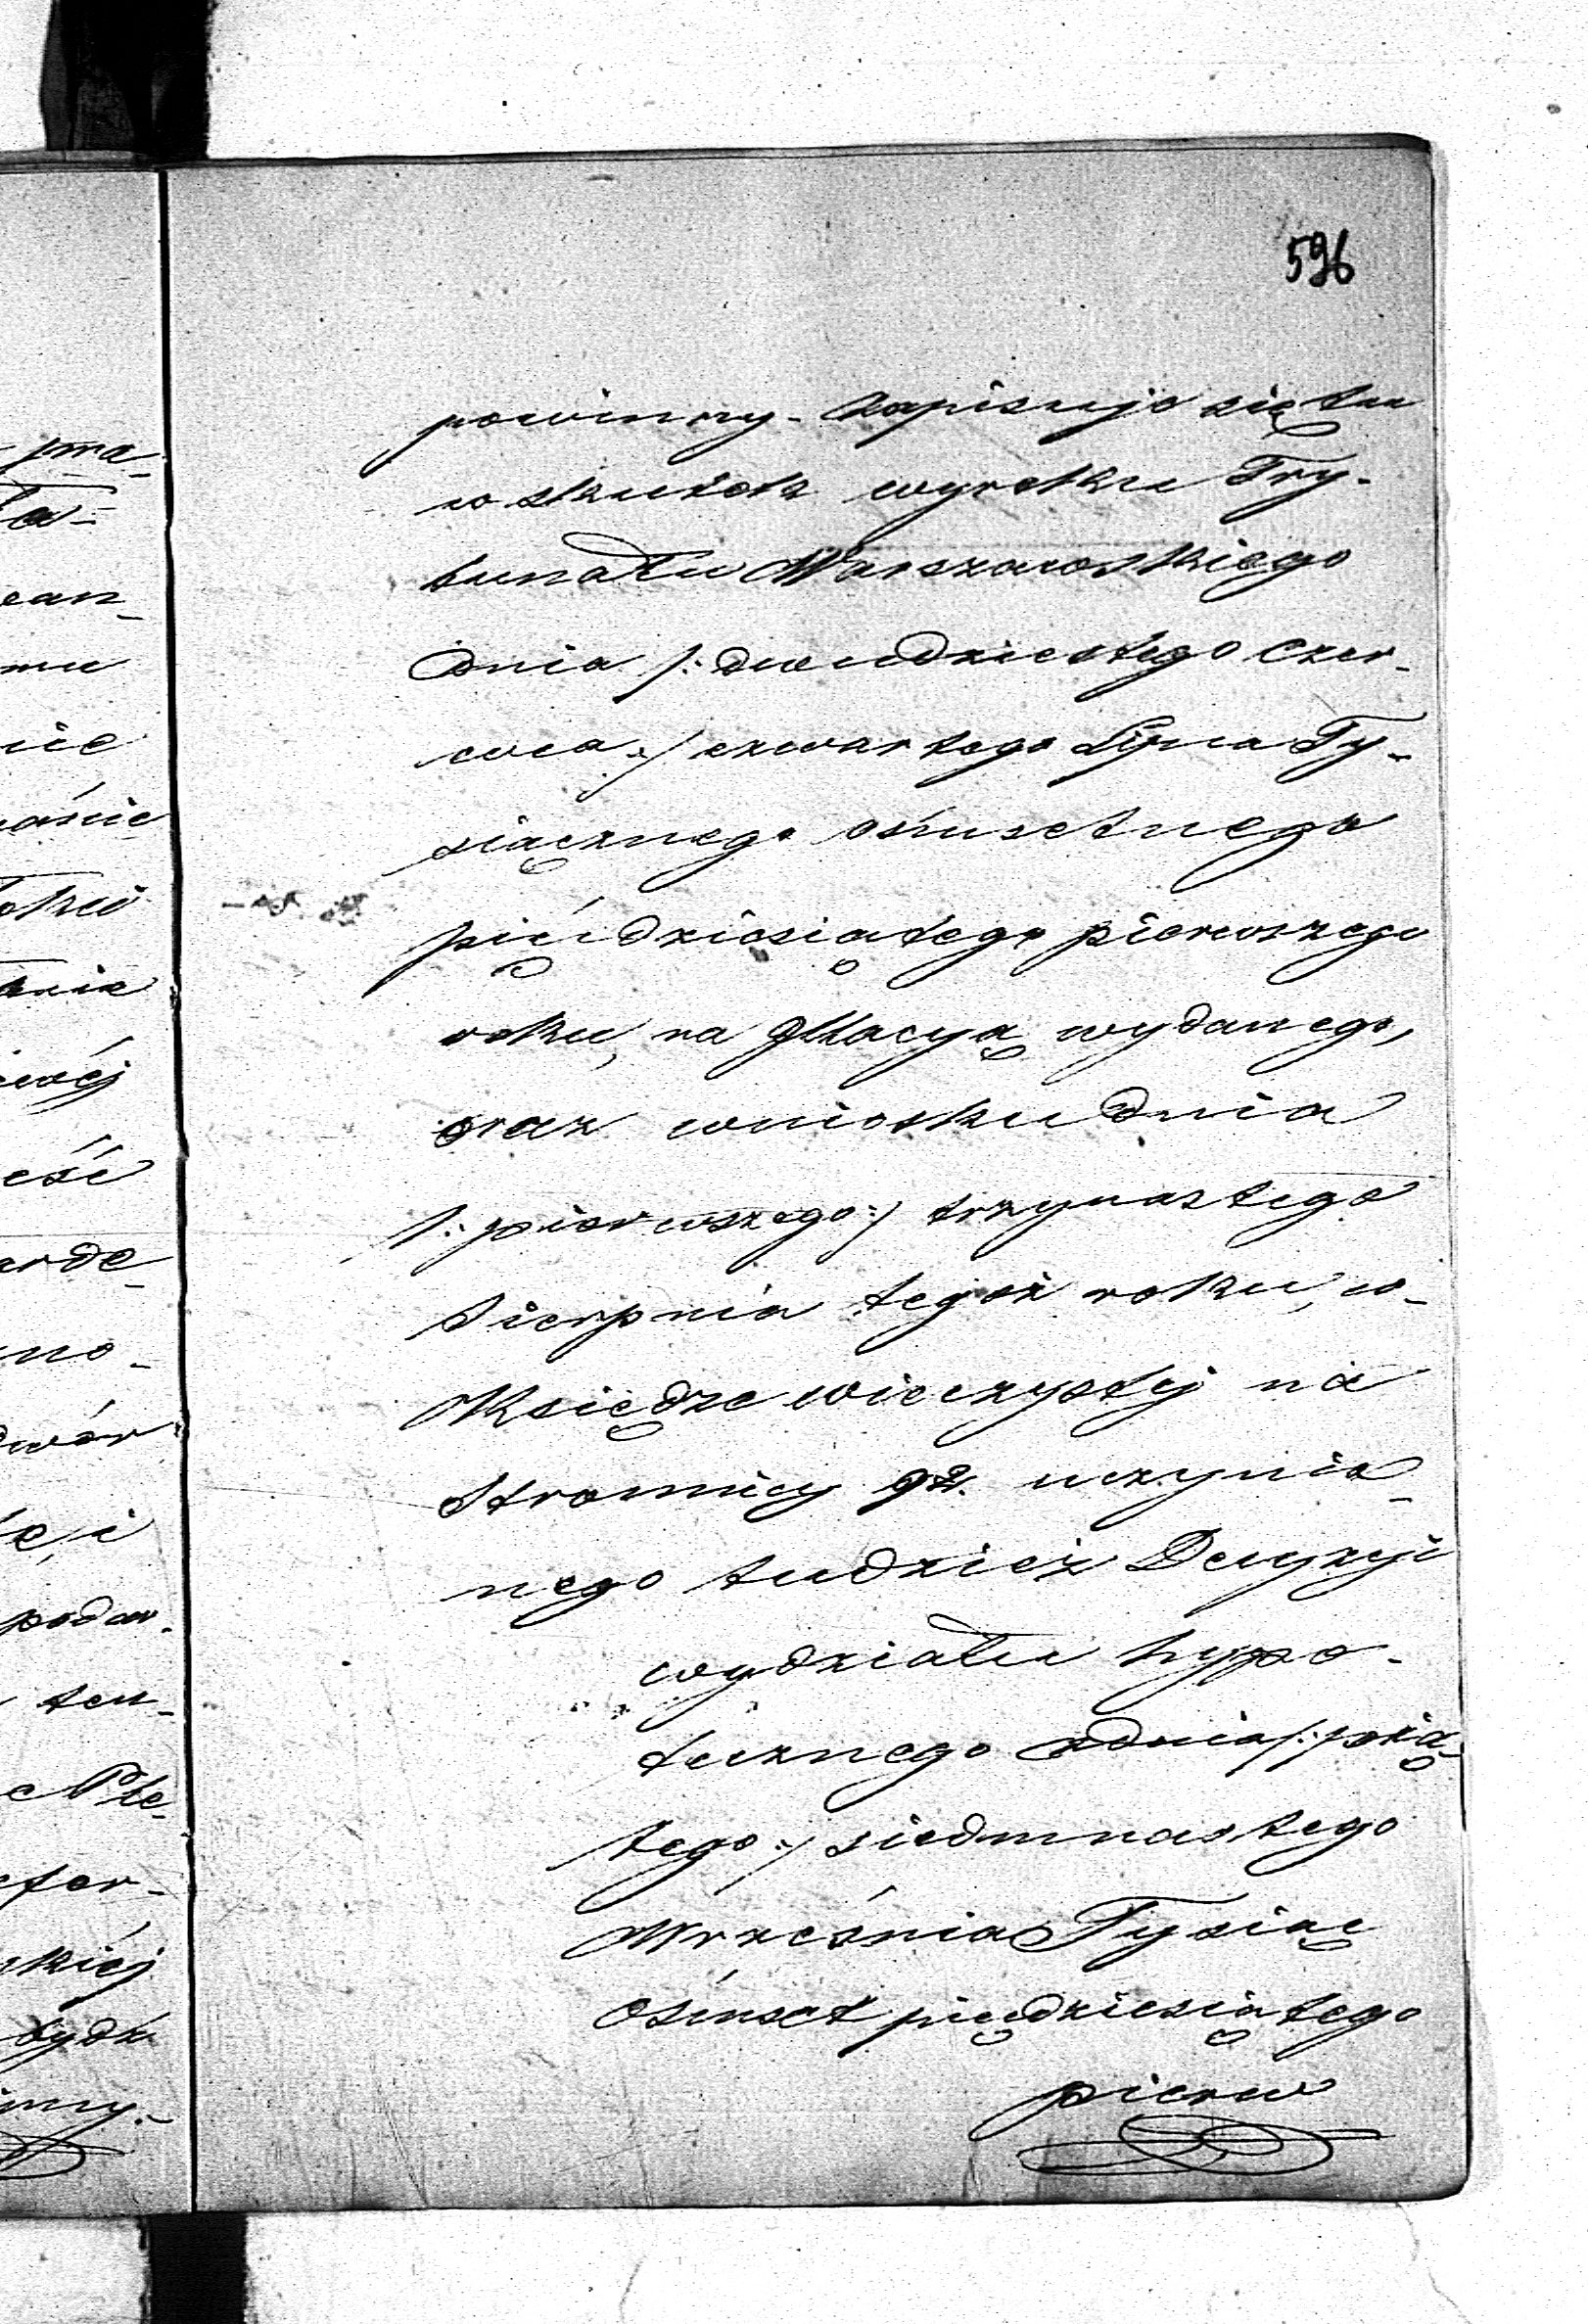 596
powinny. Zapisuje się tu
w skutek wyroku Try-
bunału Warszawskiego
dnia /: dwudziestego Czer-
wca :/ czwartego Lipca Ty-
siącznego ośmsetnego
pięćdziesiątego pierwszego
roku, na Illacyą wydanego,
oraz wniosku dnia
/: pierwszego :/ trzynastego
Sierpnia tegoż roku, w
Księdze wieczystej na
stronnicy 92. uczynio-
nego tudzież Decyzyi
wydziału hypo-
tecznego z dnia /: pią-
tego :/ siedmnastego
Września Tysiąc
ośmset pięćdziesiątego
pierw